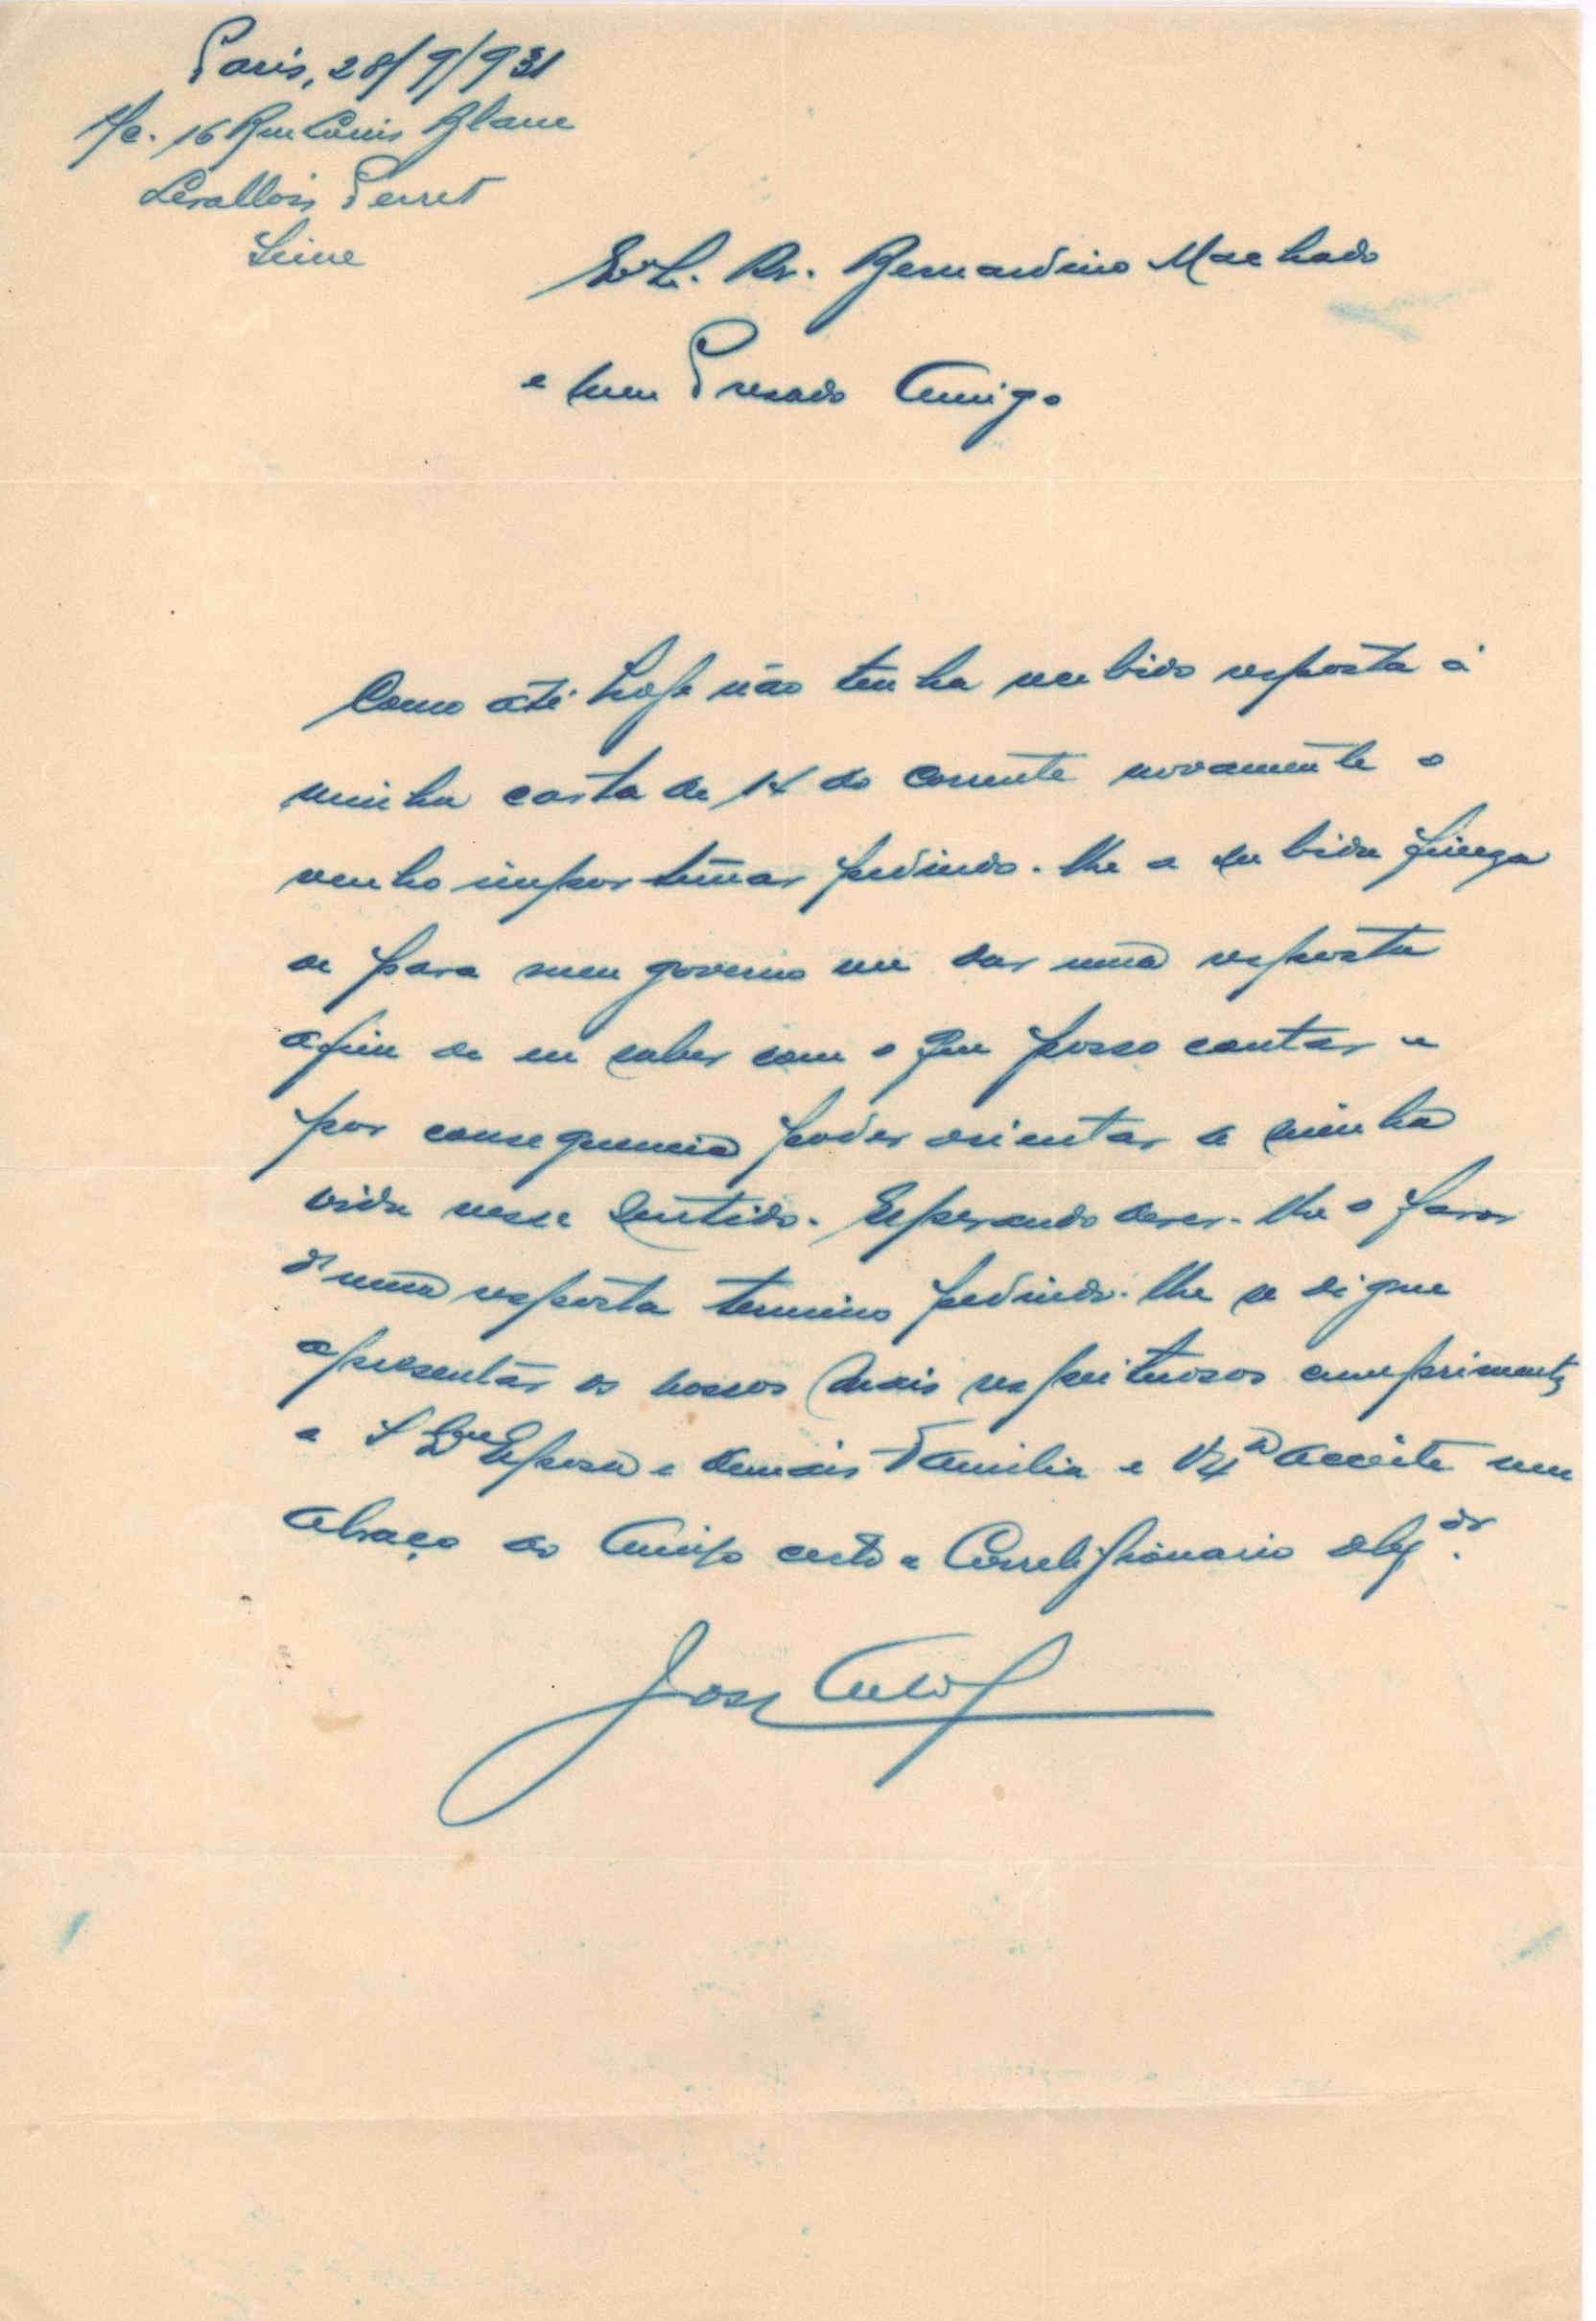 Paris, 28/9/931
A/c. 16 Rue Louis Blanc
Levallois Perret
Seine
Dr. Bernardino Machado
e meu Presado Amigo
Como até hoje não tenha recebido resposta á
minha carta de 14 do corrente novamente o
venho importunar pedindo-lhe a subida fineza
de para meu governo me dar uma resposta
afim de eu saber com o que posso contar e
por consequencia poder orientar a minha
vida nesse sentido. Esperando dever-lhe o favor
d'uma resposta termino pedindo-lhe se digne
apresentar os nossos mais respeitosos cumprimentos
a S. Esposa e demais Familia e aceite um
abraço do Amigo certo e Correligionario obg.do
José